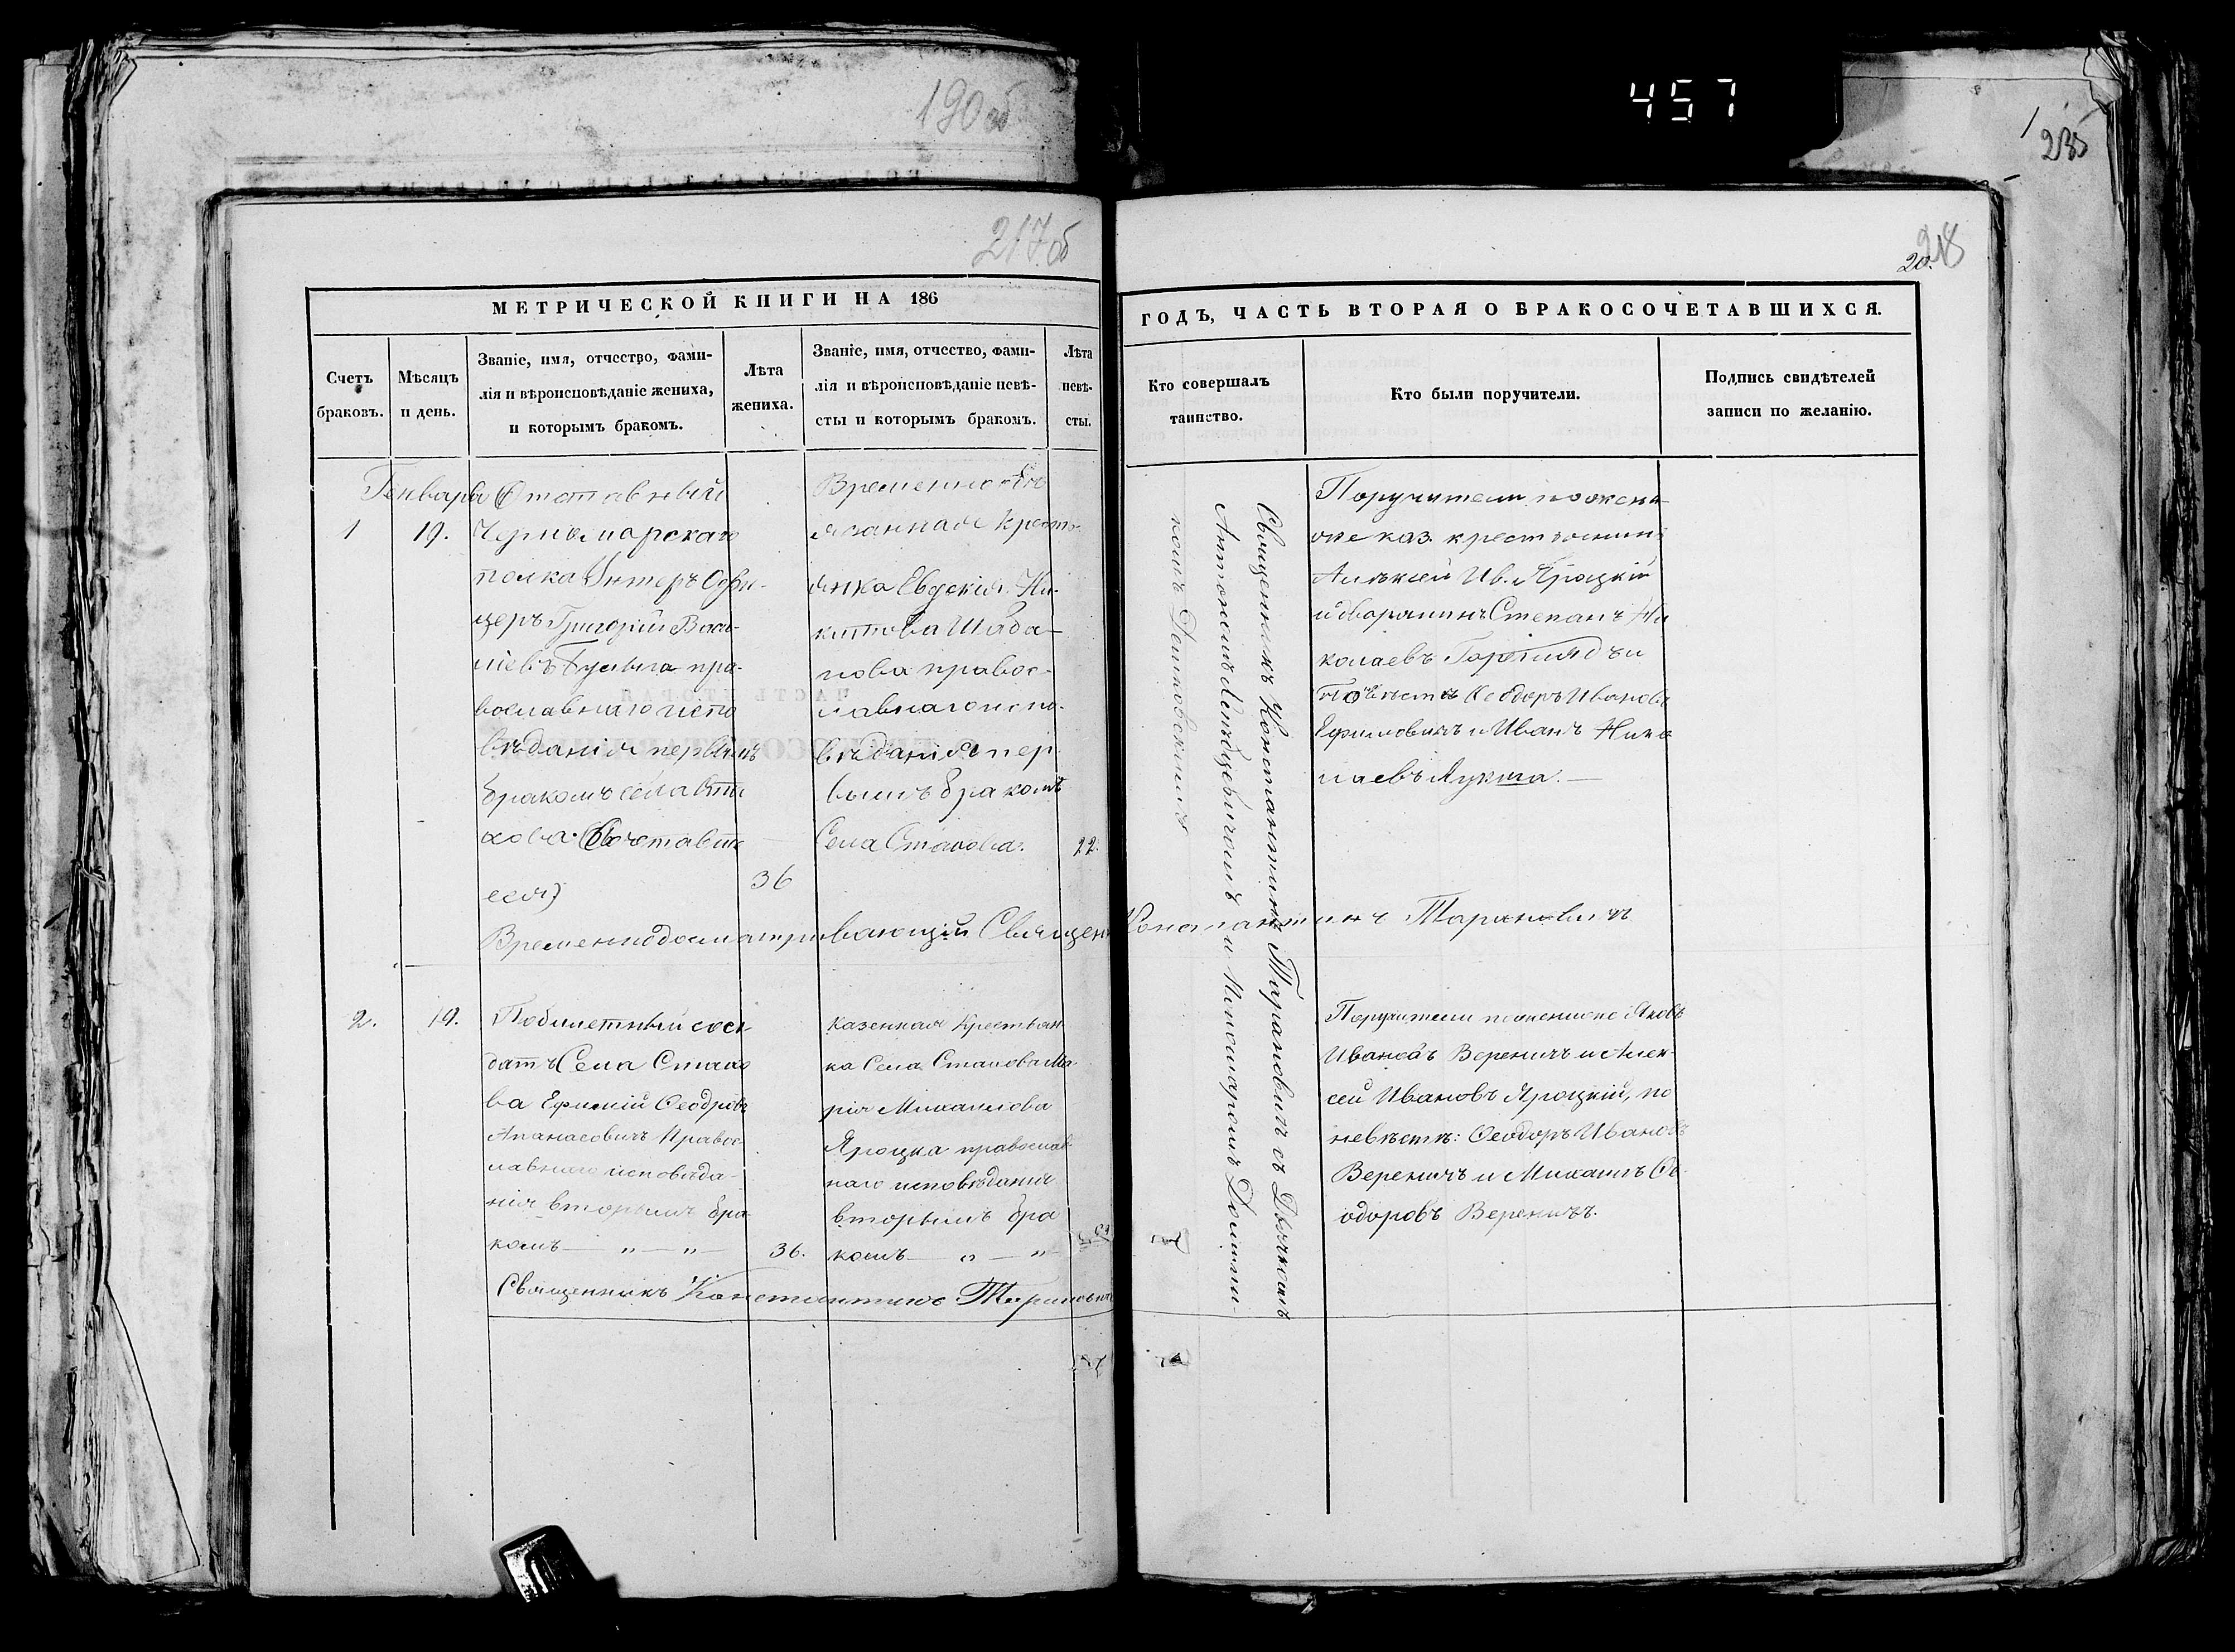 457
190об
235
217об
218
20.
МЕТРИЧЕСКОЙ КНИГИ НА 186
ГОДЪ, ЧАСТЬ ВТОРАЯ О БРАКОСОЧЕТАВШИХСЯ.
Счетъ
браковъ.
Мѣсяцъ
и день.
Званіе, имя, отчество, фами-
лія и вѣроисповѣданіе жениха,
и которымъ бракомъ.
Лѣта
жениха.
Званіе, имя, отчество, фами-
лія и вѣроисповѣданіе невѣ-
сты и которымъ бракомъ.
Лѣта
невѣ-
сты.
Кто совершалъ
таинство.
Кто были поручители.
Подпись свидѣтелей
записи по желанію.
Генваря
1
19.
Отставный
полка Унтеръ Офи-
церъ Григорій Васи-
ліевъ пра-
вославнаго испо
вѣданія первымъ
бракомъ села
сочетавш
еся)
36
Временно об
язанная крестъ-
янка Евдокія Ни-
китова
нова правос-
лавнаго испо-
вѣданія пер
вымъ бракомъ
Села Стахова.
22.
Священникъ Константинъ Тарановичъ съ Дьячкомъ
Антоніемъ и Пономаремъ
Поручители по жени-
хѣ каз. крестьянинъ
Алексѣй Ив. Яроцкій
и дворянинъ Степанъ Ни
колаевъ
по невѣстѣ Ѳеодоръ Ивановъ
Ефимовичъ и Иванъ Нико
лаевъ Лукша.—
Священ Константинъ Тарановичъ
2.
19.
Побилетный сол
датъ Села Стахо
ва Ефимій Ѳеодоровъ
Апанасовичъ Правос-
лавнаго исповѣда-
нія вторымъ бра
комъ— „—„—
36.
казенная Крестьян
ка Села Стахова Ма-
рія Михаилова
Яроцка православ-
наго исповѣданія
вторымъ бра
комъ— „—„
Поручители по женихѣ Яковъ
Ивановъ Вереничъ и Алек-
сѣй Ивановъ Яроцкій, по
невѣстѣ: Ѳеодоръ Ивановъ
Вереничъ и Михаилъ Ѳе-
одоровъ Вереничъ.
Священникъ Константинъ Тарановичъ